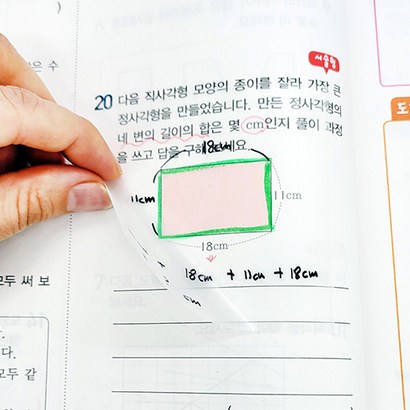 은 수
서술형
20 다음 직사각형 모양의 종이를 잘라 가장 큰
정사각형을 만들었습니다. 만든 정사각형의
네 변의 길이의 합은 몇 cm인지 풀이 과정
을 쓰고 답을 구해 보세요.
18cm
11cm
11cm
18cm
18cm + 11cm + 18cm
cm
모두 써 보
다.
모두 같
도